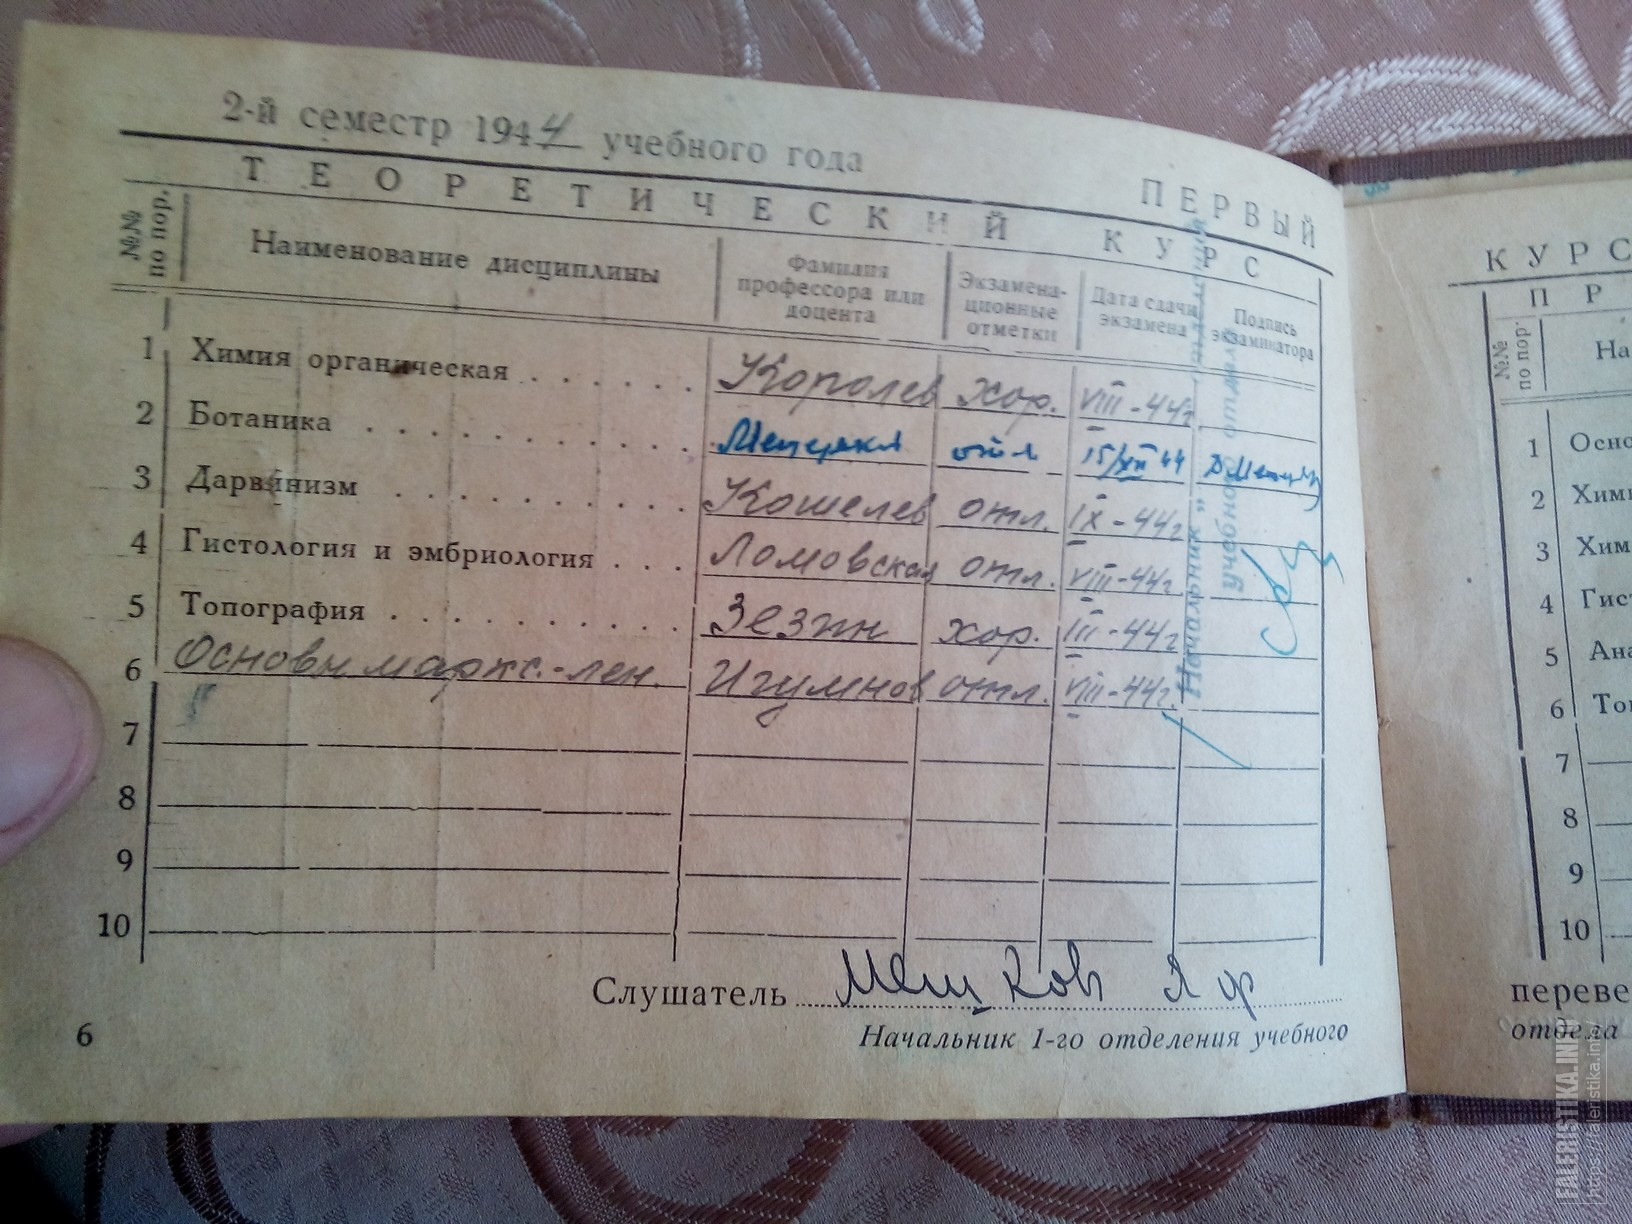 2-й семестр 1944 учебного года
ПЕРВЫЙ
ТЕОРЕТИЧЕСКИЙ КУРС
№№ по пор.
Наименование дисциплины
Фамилия профессора или доцента
Экзамена-ционные отметки
Дата сдачи экзамена
Подпись экзаминатора
1 Химия органическая Королев хор. VIII-44г
2 Ботаника отл 15/XII 44
3 Дарвинизм Кошелев отл. IX-44г
4 Гистология и эмбриология Ломовская отл. VIII-44г
5 Топография Зезин хор. III-44г
6 Основы маркс.-лен. Игумнов отл. VIII-44г.
7
8
9
10
Начальник
учебного отдела
Слушатель Мешков
6
Начальник 1-го отделения учебного
КУРС
П Р
№№ по пор.
На
1 Осно
2 Хими
3 Хим
4 Гис
5 Ана
6 То
7
8
9
10
переве
отдела
FALERISTIKA.INFO
https://faleristika.info